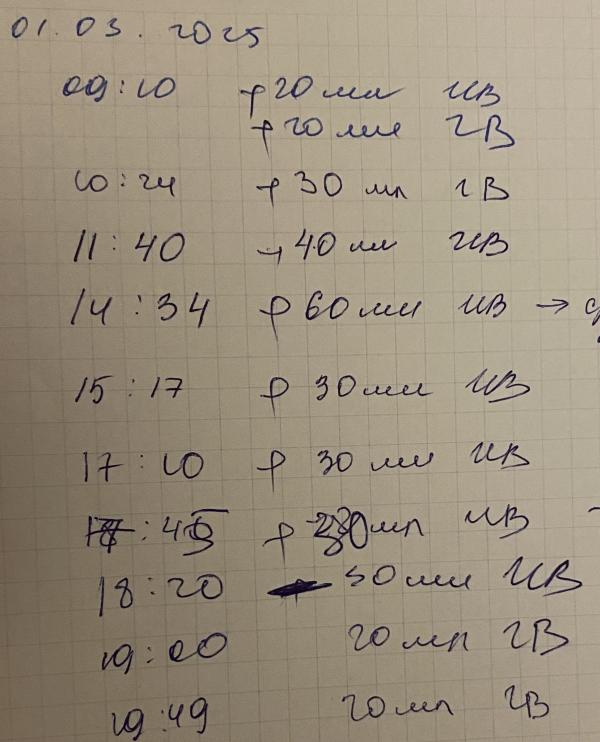 01.03.2025
09:10 +20 мл ИВ
+20 мл ГВ
10:24 +30 мл ГВ
11:40 +40 мл ИВ
14:34 + 60 мл ИВ →
15:17 + 30 мл ИВ
17:10 + 30 мл ИВ
+ 30 мл ИВ
18:20 50 мл ИВ
19:00 20 мл ГВ
19:49 20 мл ГВ